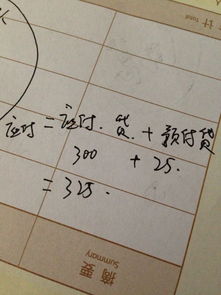 应付=应付.贷.+预付贷
300 + 25.
=325.
摘要
Summary
计